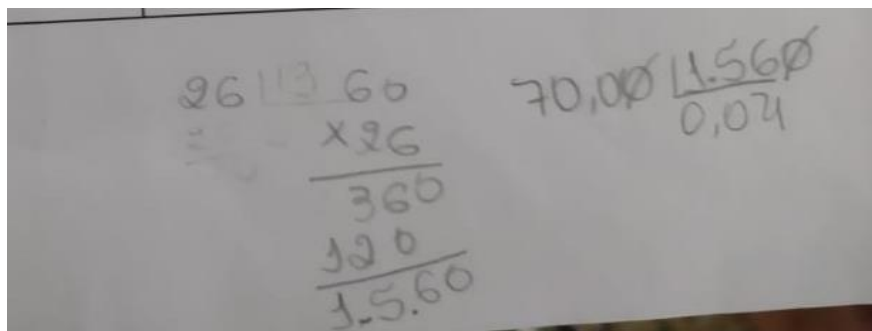 26 |13
60
×26
360
120
1.5.60
70,00 |1.560
0,04